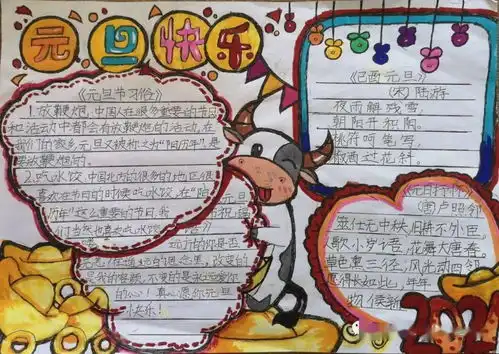 元旦快乐
《元旦节习俗》
1.放鞭炮,中国人在很多重要的节日
和活动中者都会有放鞭炮的活动,在
我们的家乡元旦又被称为“阳历年”,是
要放鞭炮的。
2.吃水饺,中国北方的很多的地区很
喜欢在节日的时候吃水饺,在“阳
历年”这么重要的节日,我
们当然也喜欢吃水饺
改变的
是我的容颜,不变的是永远爱你
的心!真心愿你元旦
快乐!
《己酉元旦》
(宋)陆游
夜雨解残雪,
朝阳开积阴。
桃符呵笔写,
椒酒过花斜。
(唐)卢照邻
筮仕无中秩,归耕有外臣。
人歌小岁酒,花舞大唐春。
草色迷三径,风光动四邻
愿得长如此,年年
物候新
202